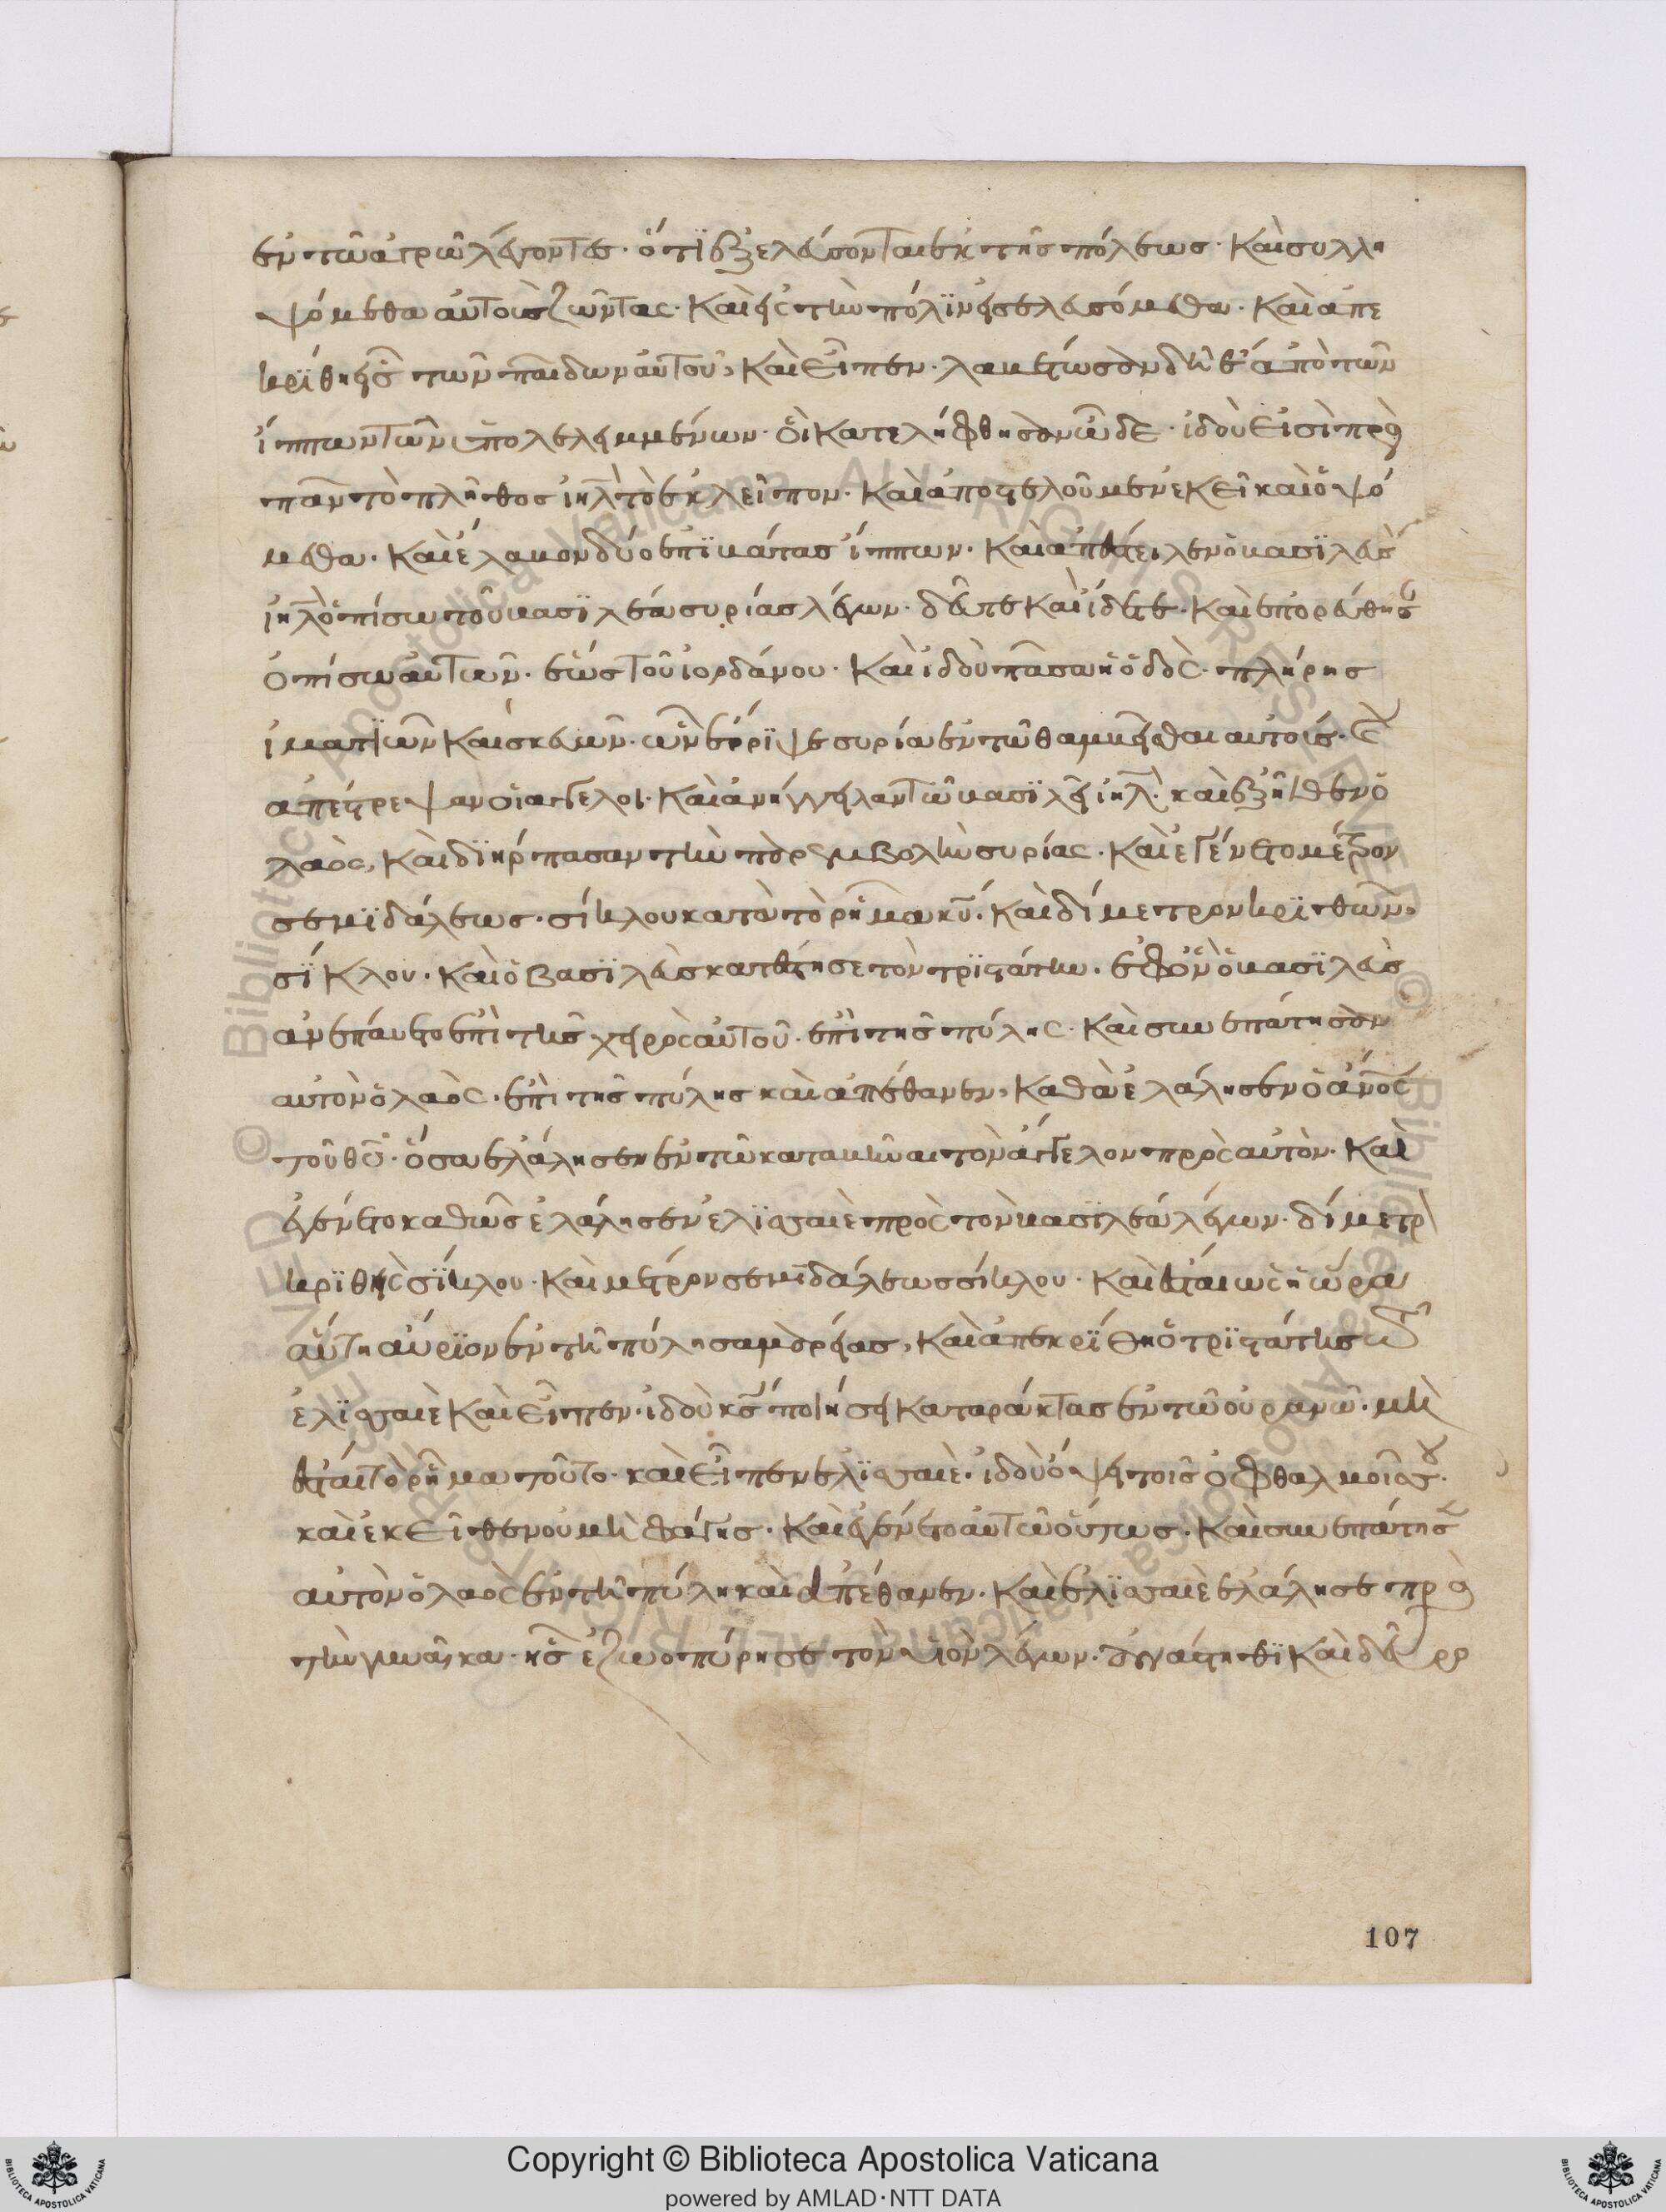 ἐν τῶ ἀγρῶ λέγοντες· ὅτι ἐξελεύσονται ἐκ τῆς πόλεως· καὶ συλλη
ψόμεθα αὐτοὺς ζῶντας· καὶ εἰς τὴν πόλιν εἰσελευσόμεθα· καὶ ἀπε
κρίθη εἷς τῶν παίδων αὐτοῦ, καὶ εἶπεν· λαβέτωσαν δὴ ε̄ ἀπὸ τῶν
ἵππων τῶν ὑπολελειμμένων· οἳ κατελήφθησαν ὧδε· ἰδού εἰσι πρὸς
πᾶν τὸ πλῆθος ἰηλ τὸ ἐκλεῖπον· καὶ ἀποστελοῦμεν ἐκεῖ καὶ ὀψό
μεθα· καὶ ἔλαβον δύο ἐπιβάτας ἵππων· καὶ ἀπέστειλεν ὁ βασιλεὺς
ἰηλ ὀπίσω τοῦ βασιλέως συρίας λέγων· δεῦτε καὶ ἴδετε· καὶ ἐπορεύθησ
ὀπίσω αὐτῶν· ἕως τοῦ ἰορδάνου· καὶ ἰδοὺ πᾶσα ἡ ὁδὸς· πλήρης
ἱματίων καὶ σκευῶν· ὧν ἔρριψε συρία ἐν τῶ θαμβεῖσθαι αὐτούς· καὶ
ἀπέστρεψαν οἱ ἄγγελοι· καὶ ἀνήγγειλαν τῶ βασιλεῖ ἰηλ· καὶ ἐξῆλθεν ὁ
λαὸς, καὶ διήρπασαν τὴν παρεμβολὴν συρίας· καὶ ἐγένετο μέτρον
σεμιδάλεως· σίκλου κατὰ τὸ ῥῆμα κυ· καὶ δίμετρον κριθῶν,
σίκλου· καὶ ὁ βασιλεὺς κατέστησε τὸν τριστάτην· ἐφ' ὃν ὁ βασιλεὺς
ἀνεπαύετο ἐπὶ τῆς χειρὸς αὐτοῦ· ἐπὶ τῆς πύλης· καὶ συνεπάτησαν
αὐτὸν ὁ λαὸς· ἐπὶ τῆς πύλης καὶ ἀπέθανεν, καθὰ ἐλάλησεν ὁ ἄνος
τοῦ θυ· ὅσα ἐλάλησεν ἐν τῶ καταβῆναι τὸν ἄγγελον πρὸς αὐτόν· καὶ
ἐγένετο καθὼς ἐλάλησεν ἐλισσαιὲ πρὸς τὸν βασιλέα λέγων· δίμετρ
κριθῆς σίκλου· καὶ μέτρον σεμιδάλεως σίκλου· καὶ ἔσται ὡς ἡ ὥρα
αὕτη αὔριον ἐν τῆ πύλη σαμαρείας, καὶ ἀπεκρίθη ὁ τριστάτης τῶ
ἐλισσαιὲ καὶ εἶπεν· ἰδοὺ κς ποιήσει καταράκτας ἐν τῶ οὐρανῶ· μὴ
ἔσται τὸ ῥῆμα τοῦτο· καὶ εἶπεν ἐλισσαιέ· ἰδοὺ ὄψει τοῖς ὀφθαλμοῖς σου·
καὶ ἐκεῖθεν οὐ μὴ φάγης· καὶ ἐγένετο αὐτῶ οὕτως· καὶ συνεπάτησ
αὐτὸν ὁ λαὸς ἐν τῆ πύλη καὶ ἀπέθανεν· καὶ ἐλισσαιὲ ἐλάλησε πρὸς
τὴν γυναῖκα· ἧς ἐζωοπύρησε τὸν υἱὸν λέγων· ἀνάστηθι καὶ δεῦρο
107
Copyright © Biblioteca Apostolica Vaticana
powered by AMLAD·NTT DATA